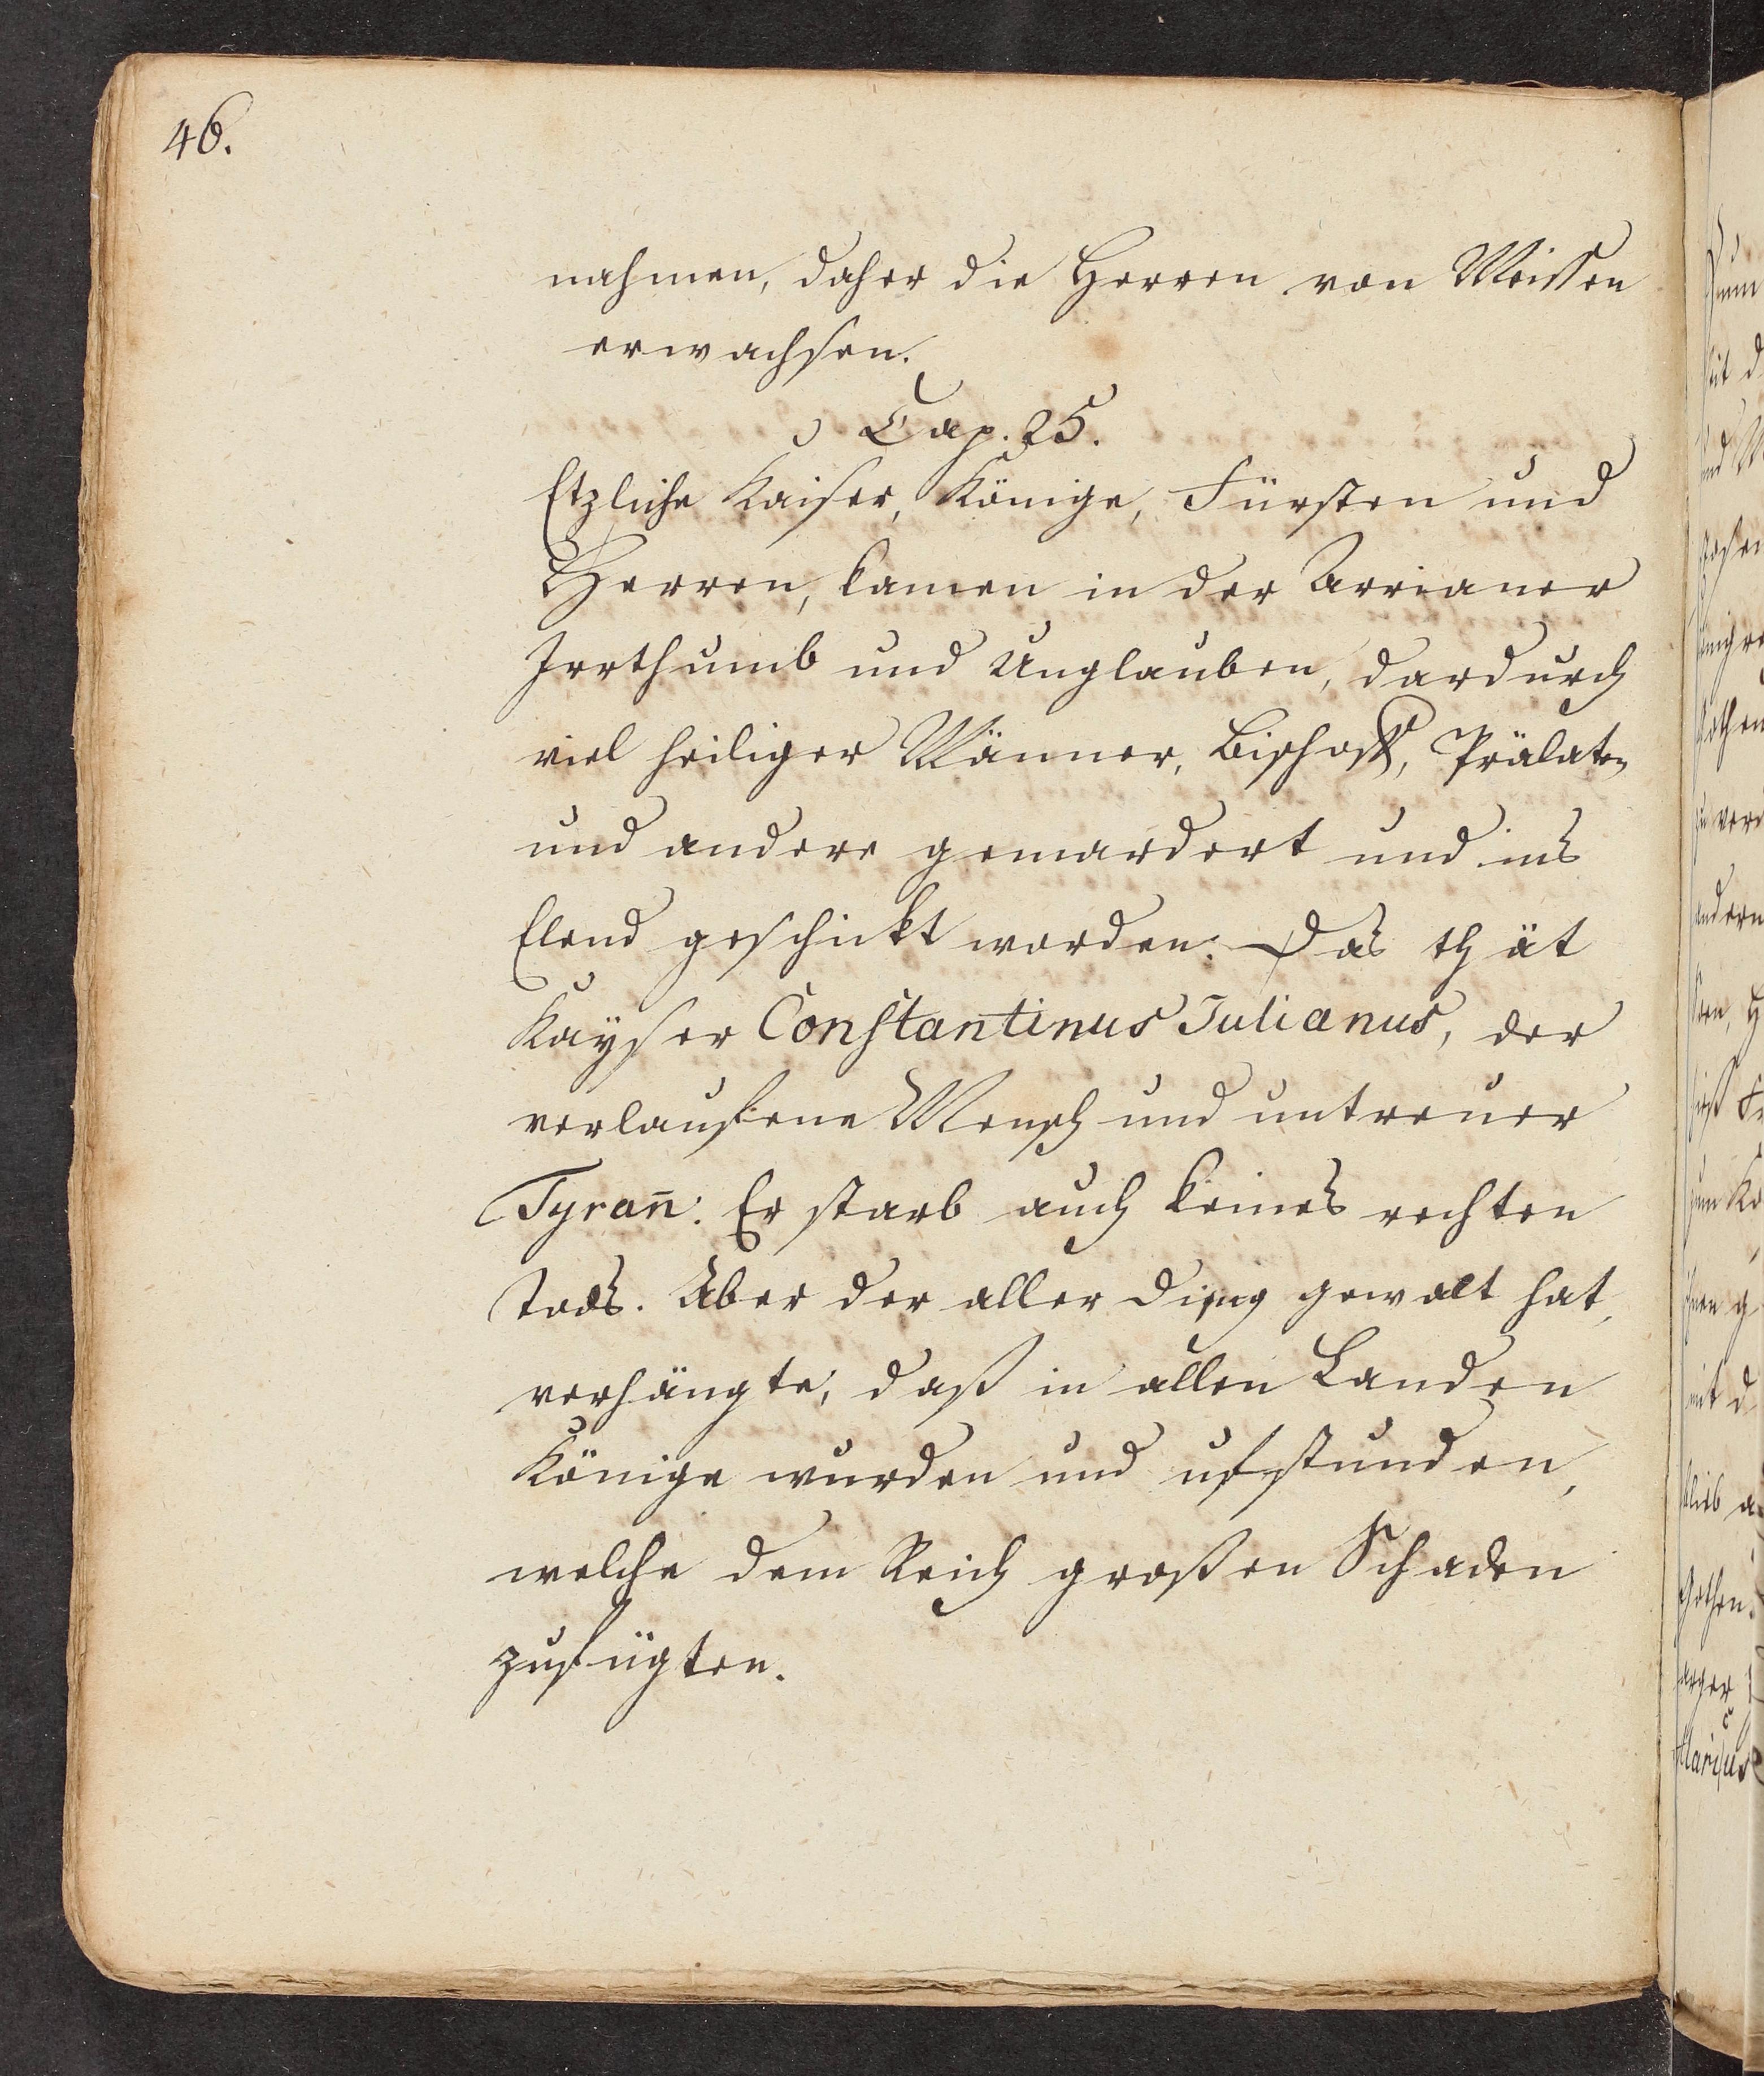 46.
nahmen, daher die Herren von Meissen
erwachsen.
Cap. 25.
Etzliche Kaiser, Könige, Fürsten und
Herren, kamen in der Arrianer
Irrthumb und Unglauben, dardurch
viel heiliger Männer, Bischoff, Prälaten
und andere gemardert und ins
Elend geschickt worden. Das thät
Kayser Constantinus Julianus, der
verlaufene Mensch und untreuer
Tyrañ. Er starb auch keines rechten
Tods. Aber der aller Ding gewalt hat,
verhängte, daß in allen Landen
Könige wurden und ufstunden,
welche dem Reich großen Schaden
zufügten.